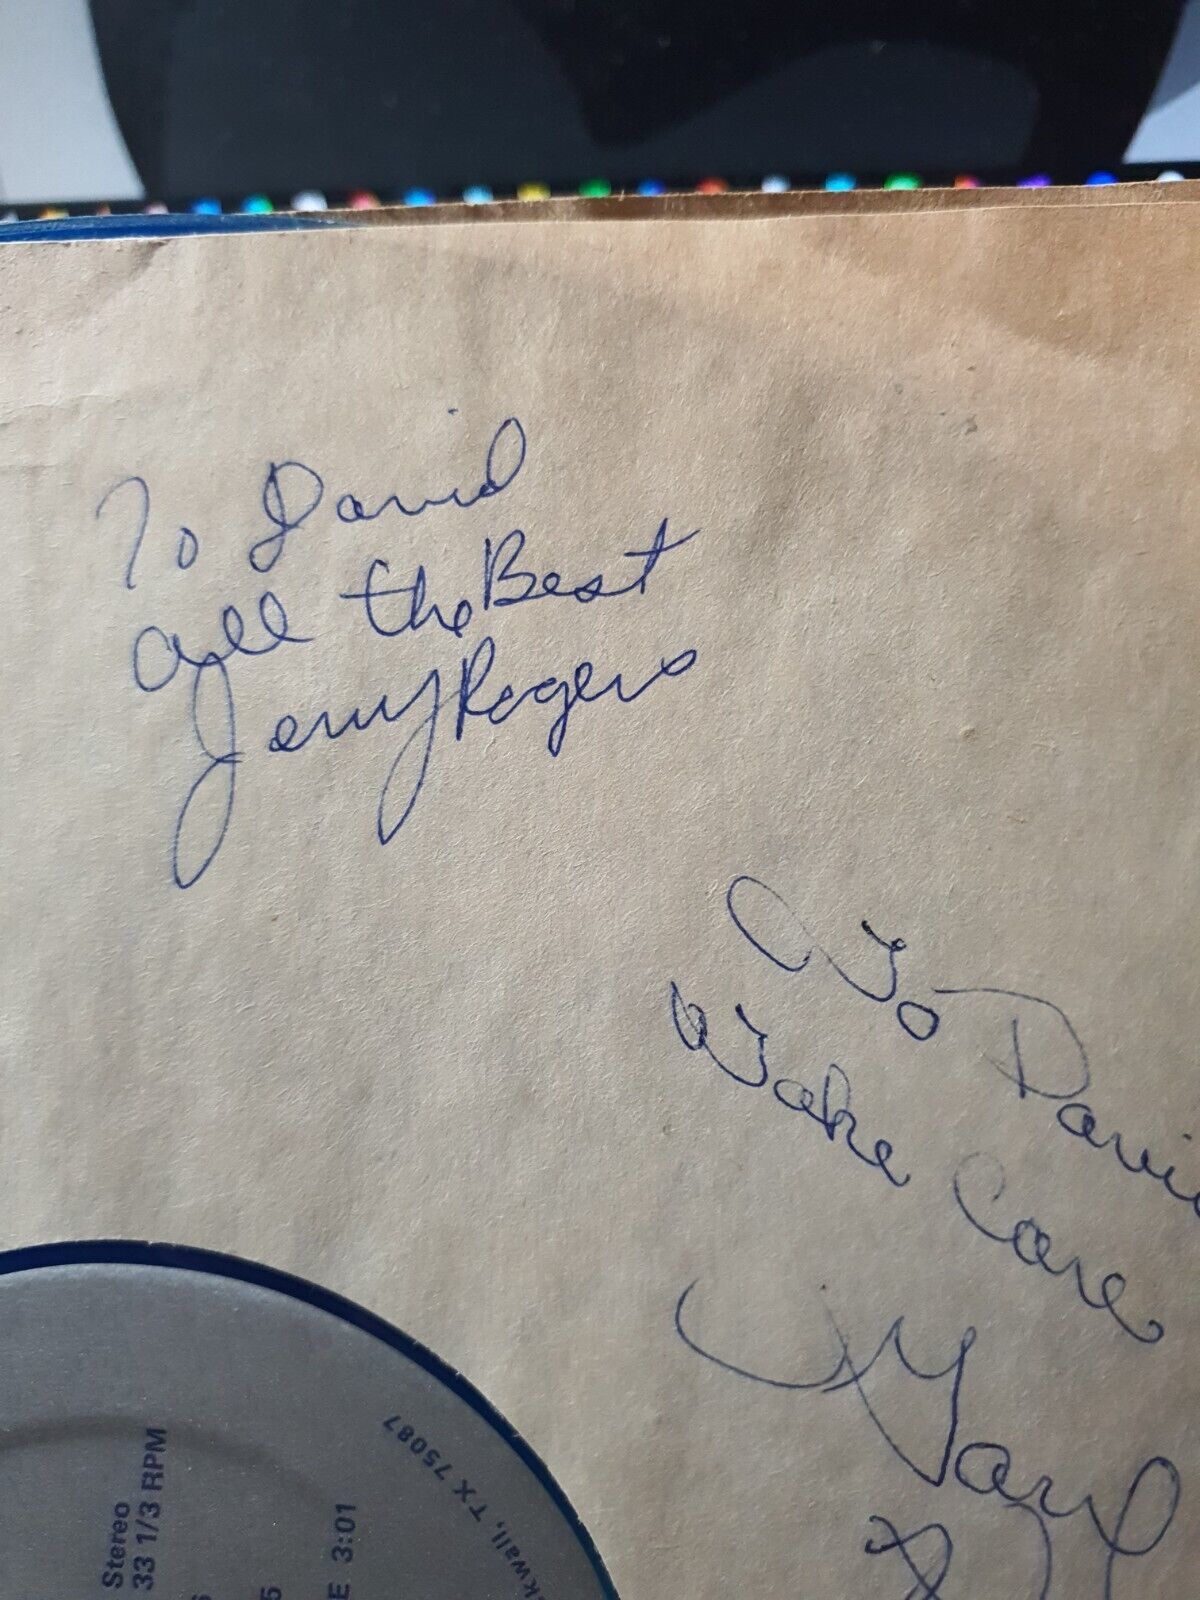 To David
All the Best
Jerry Rogers
To David
Take Care
Stereo
33 1/3 RPM
E 3:01
kwall, TX 75087